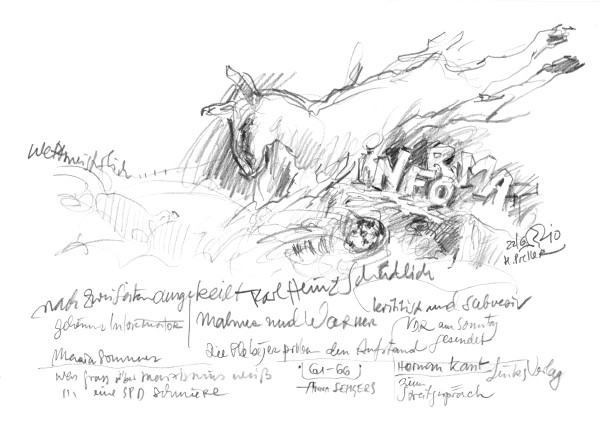 weltmeisterlich....
INFORMA
22/6 10
H. Preller
nach zwei Seiten angekeilt Karl Heinz Schädlich
geheimer Informator
Mahner und Warner
kritisch und subversiv
die Plebejer proben den Aufstand
am Sonntag
gesendet
Maria Sommer
was Grass über Marxismus weiß
!!! eine SPD
61-66
Anna SEGHERS
Hermann Kant
zum
Streitgespräch
Links Verlag